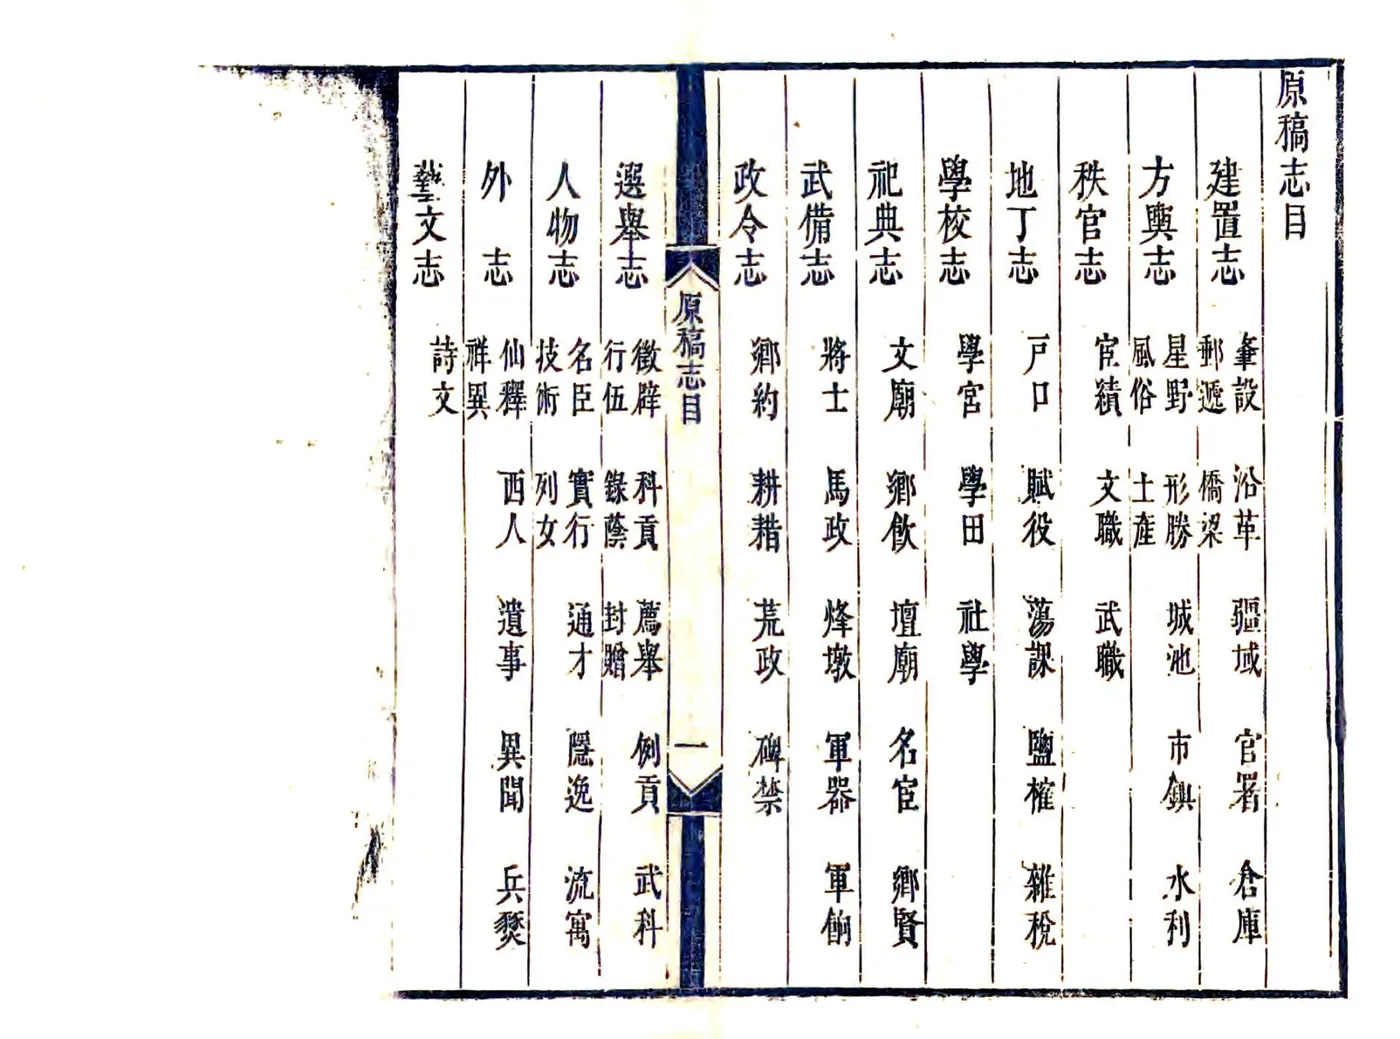 原稿志目
建置志 肇設 沿革 疆域 官署 倉庫
郵遞 橋梁
方輿志 星野 形勝 城池 市鎮 水利
風俗 土產
秩官志 宦績 文職 武職
地丁志 戸口 賦役 蕩課 鹽榷 雜稅
學校志 學宮 學田 社學
祀典志 文廟 鄉飲 壇廟 名宦 鄉賢
武備志 將士 馬政 烽墩 軍器 軍餉
政令志 鄉約 耕耤 荒政 碑禁
原稿志目 一
選舉志 徵辟 科貢 薦舉 例貢 武科
行伍 錄蔭 封贈
人物志 名臣 實行 通才 隱逸 流寓
技術 列女
外志 仙釋 西人 遺事 異聞 兵燹
祥異
藝文志 詩文